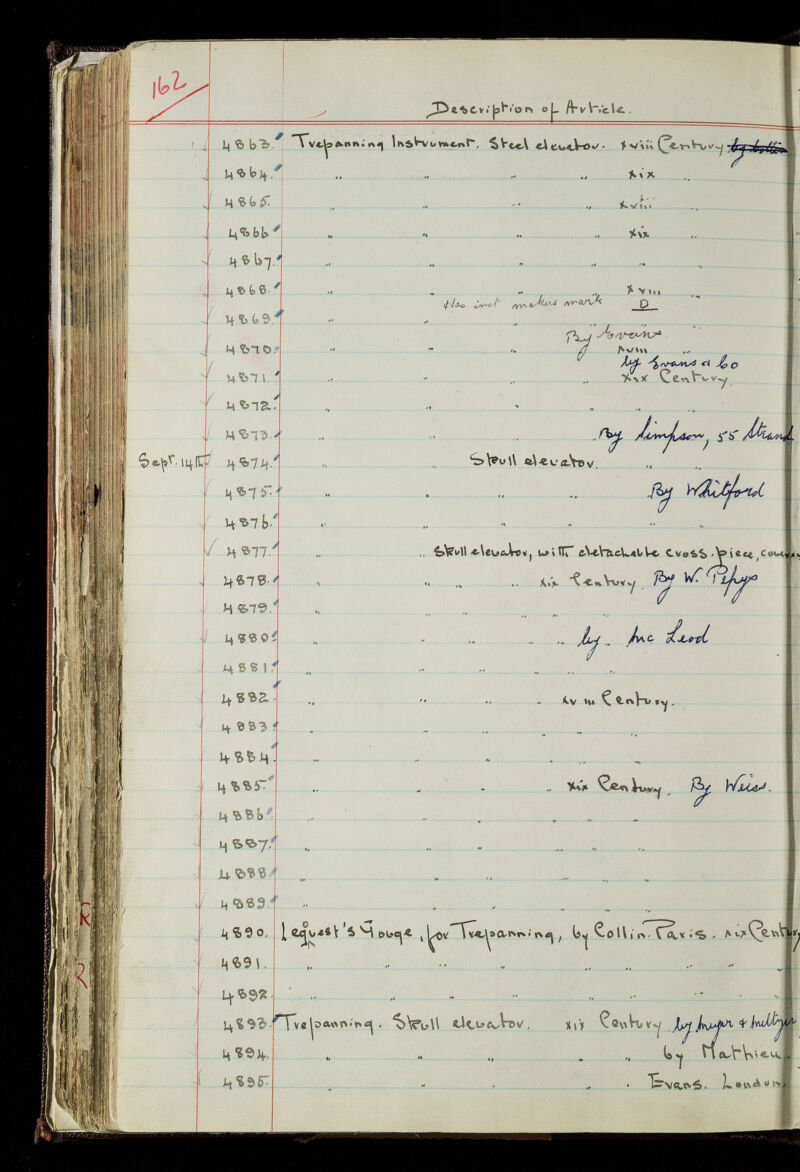 162
Description of Article.
4863. Trepanning Instrument. Steel elevator. xviii Century
4864. " " " " xix "
4865. " " " " xviii "
4866 " " " " xix "
4867. " " " " "
4868. " " " " xviii "
Also inst makers mark D
4869. " " "
By Evans "
4870. " " " xviii "
by Evans & Co
4871. " " " " xix Century.
4872. " " " " " "
4873. " " " By Simpson, 55 Strand
Sept. 14th 4874. " " Skull elevator. " "
4875. " " " " By Whitford
4876. " " " " " "
4877. " " Skull elevator, with detachable cross-piece,
4878. " " " " xix Century. By W. Pepys
4879. " " " " " "
4880. " " " " " by Mc Leod
4881. " " " " " "
4882. " " " " xviii Century.
4883 " " " " " "
4884. " " " " "
4885. " " " " xix Century. By Weiss.
4886 " " " " " "
4887. " " " " " "
4888 " " " " " "
4889. " " " " "
R 4890. Leguest's Gouge, for Trepanning, by Collin. Paris. xix Century
R 4891. " " " " " " "
4892. " " " " " "
4893. Trepanning. Skull elevator. xix Century by Meyer & Meltzer
4894. " " " " " by Mathieu
4895. " " " " Evans. London